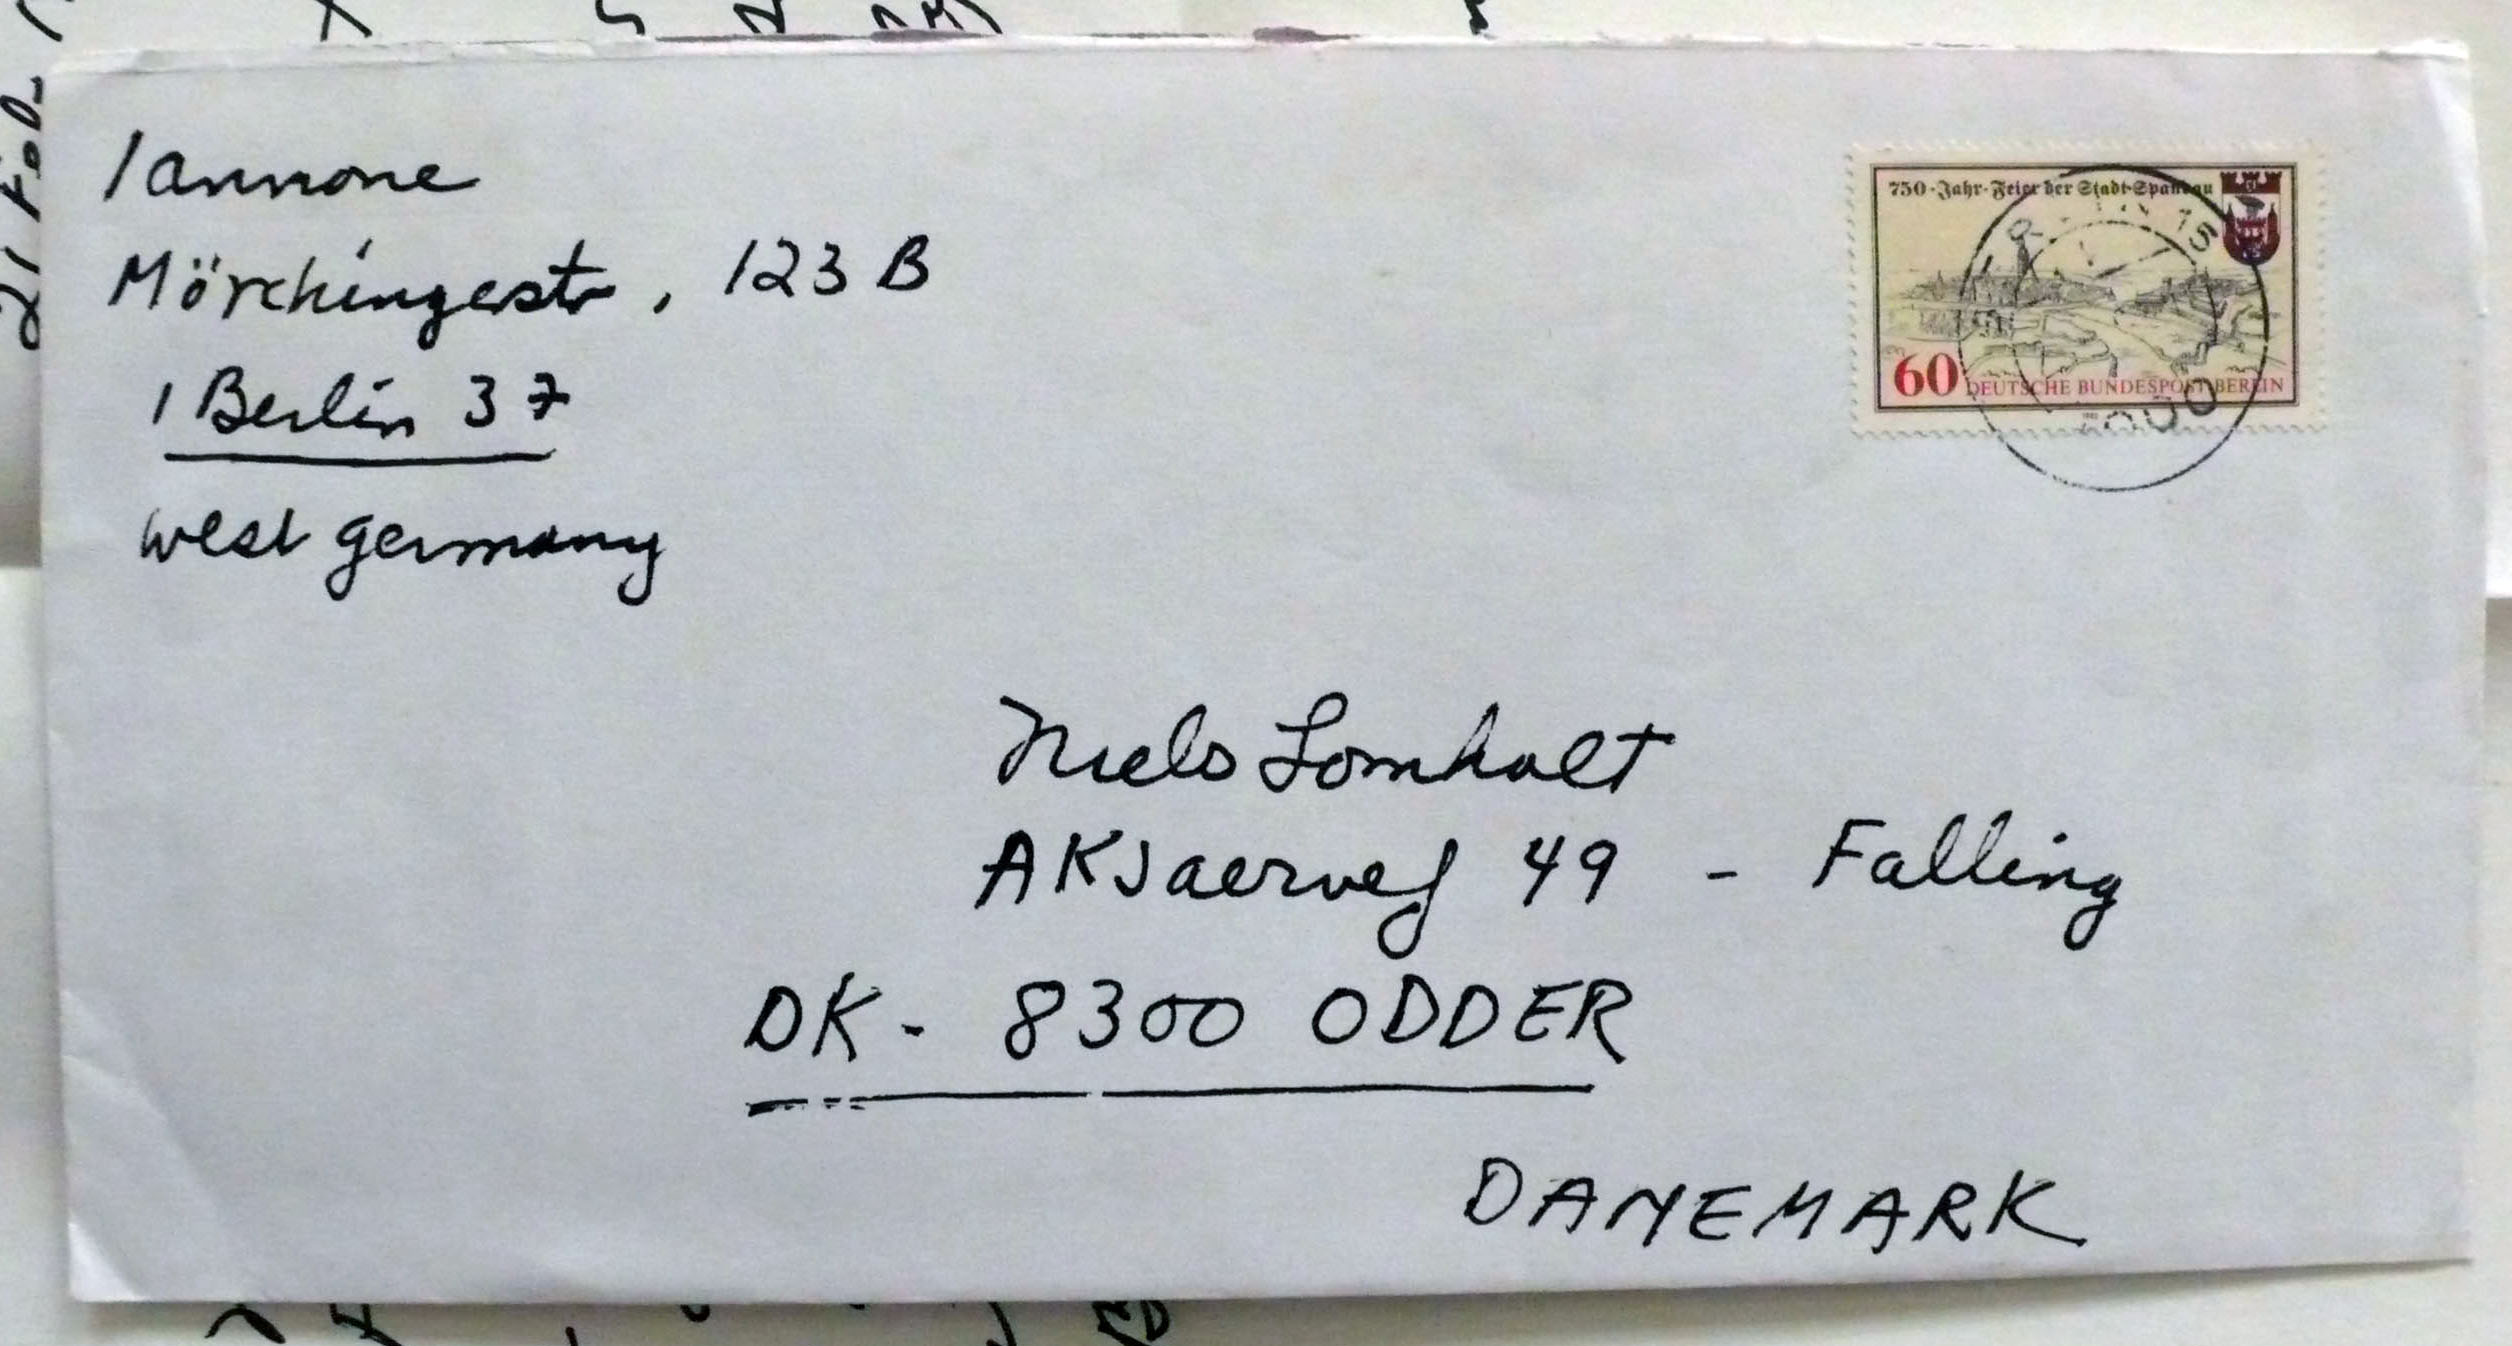 Iannone
Mörchingerstr, 123 B
1 Berlin 37
west germany
750-Jahr-Feier der Stadt Spandau
15
60 DEUTSCHE BUNDESPOST BERLIN
Niels Lomholt
AKJaerveg 49 - Falling
DK- 8300 ODDER
DANEMARK